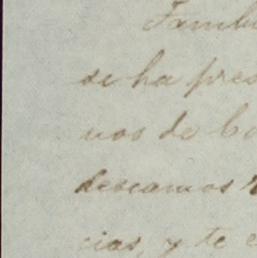 Famili
se ha pres
nos de ba
deseamos
cias, y te